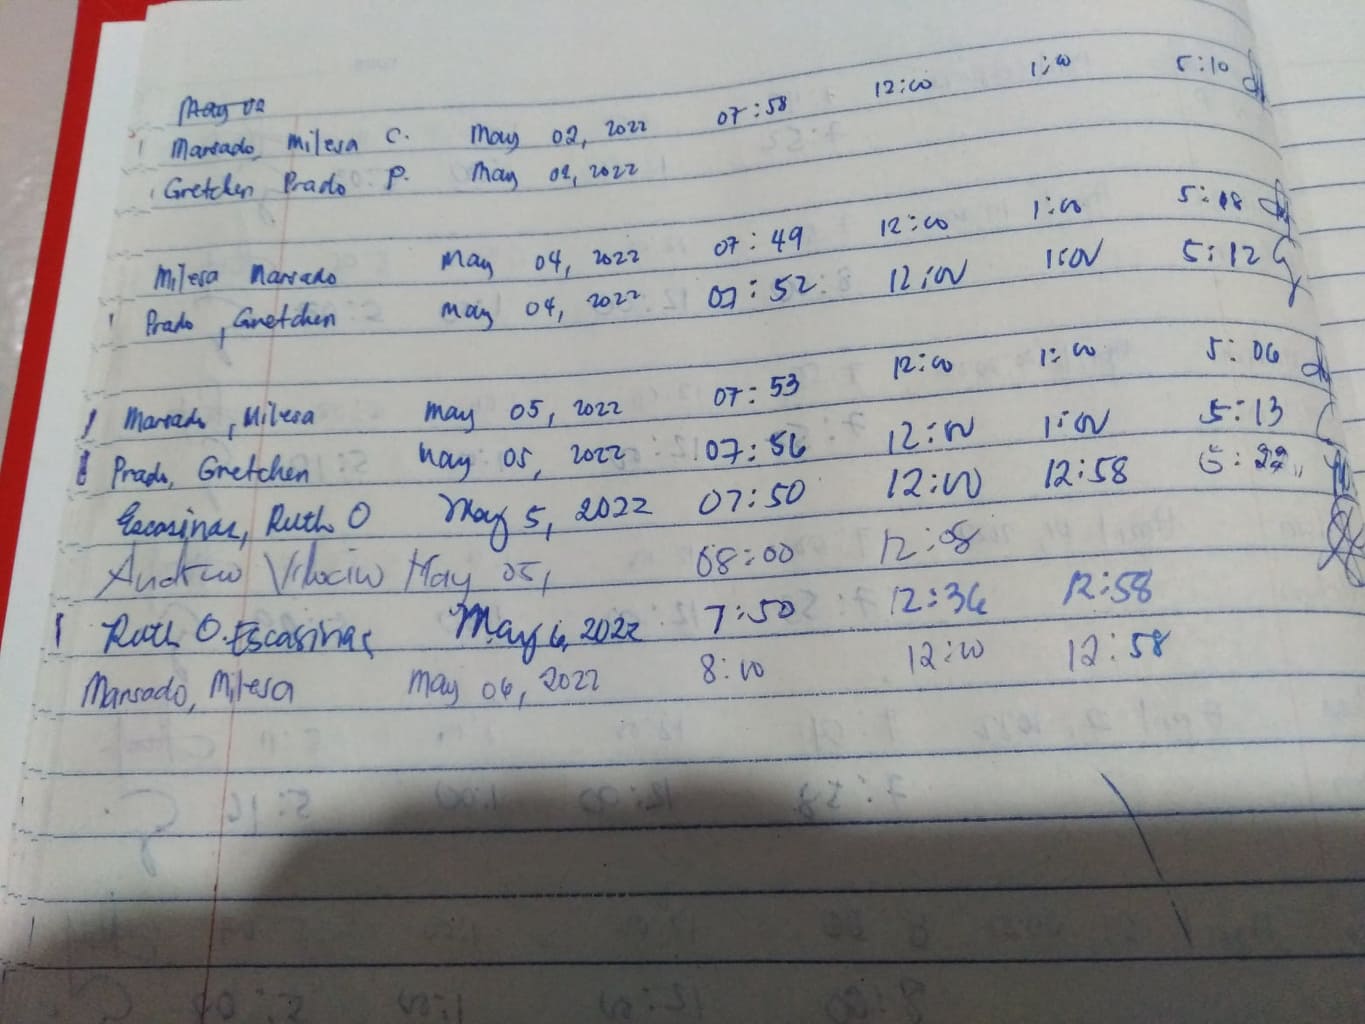 May 02
Marsado, Milesa C. May 02, 2022 07:58 12:00 1:00 5:10
Gretchen Prado P. May 02, 2022
Milesa Marsado May 04, 2022 07:49 12:00 1:00 5:18
Prado, Gretchen May 04, 2022 07:52 12:00 1:00 5:12
Marsado, Milesa May 05, 2022 07:53 12:00 1:00 5:06
Prado, Gretchen May 05, 2022 07:56 12:00 1:00 5:13
Escasinas, Ruth O May 5, 2022 07:50 12:00 12:58
May 05, 08:00 12:08
Ruth O. Escasinas May 6, 2022 7:50 12:36 12:58
Marsado, Milesa May 06, 2022 8:00 12:00 12:58